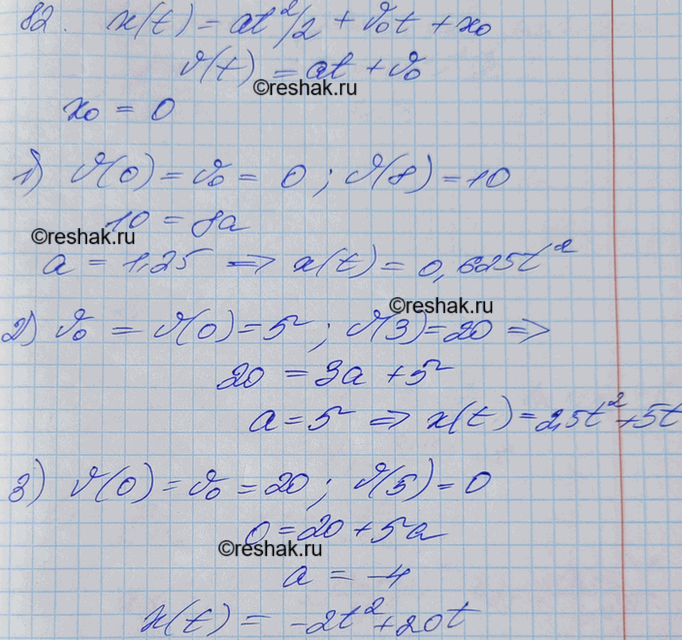 82. x(t) = at²/2 + v₀t + x₀
v(t) = at + v₀
©reshak.ru
x₀ = 0
1) v(0) = v₀ = 0 ; v(8) = 10
10 = 8a
©reshak.ru
a = 1,25 => x(t) = 0,625t²
©reshak.ru
2) v₀ = v(0) = 5 ; v(3) = 20 =>
20 = 3a + 5
a = 5 => x(t) = 2,5t² + 5t
3) v(0) = v₀ = 20 ; v(5) = 0
0 = 20 + 5a
©reshak.ru
a = -4
x(t) = -2t² + 20t